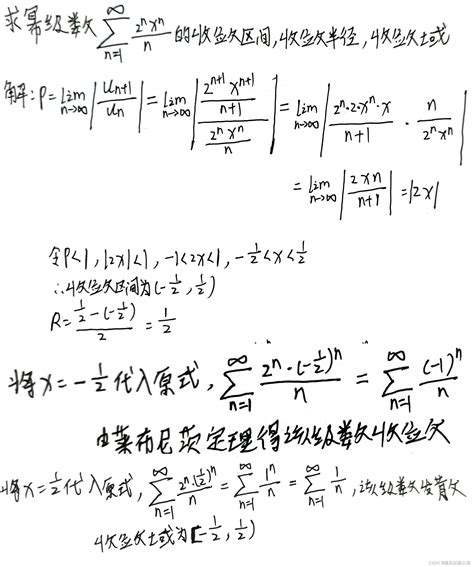 求幂级数 $\sum_{n=1}^{\infty} \frac{2^n x^n}{n}$ 的收敛区间,收敛半径,收敛域
解: $\rho = \lim_{n\to\infty} \left| \frac{u_{n+1}}{u_n} \right| = \lim_{n\to\infty} \left| \frac{\frac{2^{n+1} x^{n+1}}{n+1}}{\frac{2^n x^n}{n}} \right| = \lim_{n\to\infty} \left| \frac{2^n \cdot 2 \cdot x^n \cdot x}{n+1} \cdot \frac{n}{2^n x^n} \right|$
$= \lim_{n\to\infty} \left| \frac{2xn}{n+1} \right| = |2x|$
令 $\rho < 1$, $|2x| < 1$, $-1 < 2x < 1$, $-\frac{1}{2} < x < \frac{1}{2}$
∴收敛区间为 $(-\frac{1}{2}, \frac{1}{2})$
$R = \frac{\frac{1}{2} - (-\frac{1}{2})}{2} = \frac{1}{2}$
将 $x = -\frac{1}{2}$ 代入原式, $\sum_{n=1}^{\infty} \frac{2^n \cdot (-\frac{1}{2})^n}{n} = \sum_{n=1}^{\infty} \frac{(-1)^n}{n}$
由莱布尼茨定理得该级数收敛
将 $x = \frac{1}{2}$ 代入原式, $\sum_{n=1}^{\infty} \frac{2^n \cdot (\frac{1}{2})^n}{n} = \sum_{n=1}^{\infty} \frac{1^n}{n} = \sum_{n=1}^{\infty} \frac{1}{n}$, 该级数发散
收敛域为 $[-\frac{1}{2}, \frac{1}{2})$